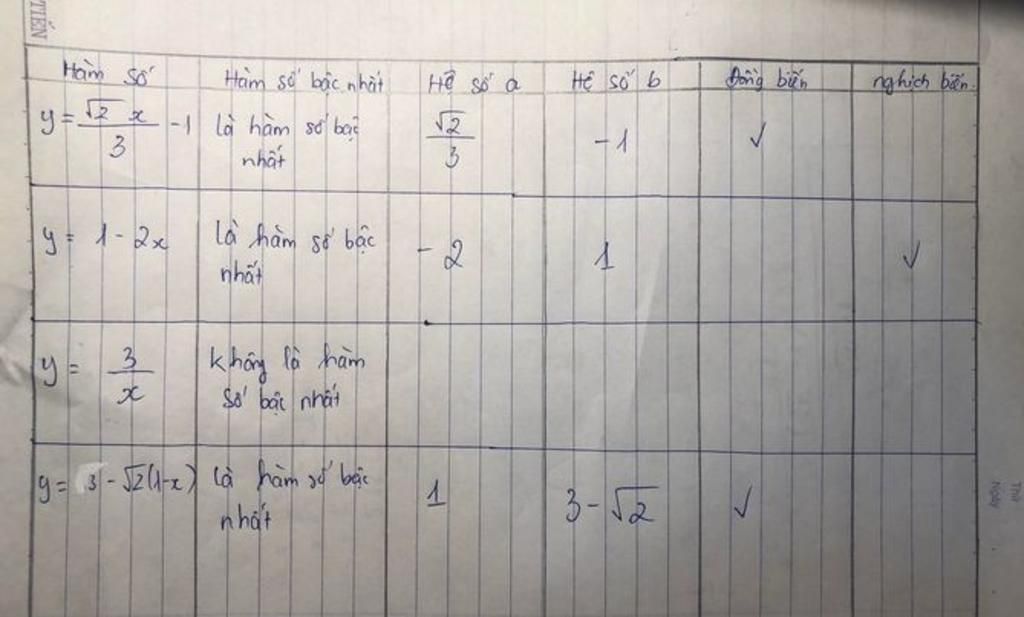 TIẾN
Hàm số Hàm số bậc nhất Hệ số a Hệ số b Đồng biến nghịch biến.
y = √2 x / 3 - 1 là hàm số bậc √2 / 3 - 1 ✓
nhất
y = 1 - 2x là hàm số bậc - 2 1 ✓
nhất
y = 3 / x không là hàm
số bậc nhất
y = 3 - √2(1-x) là hàm số bậc 1 3 - √2 ✓
nhất
Thứ
Ngày